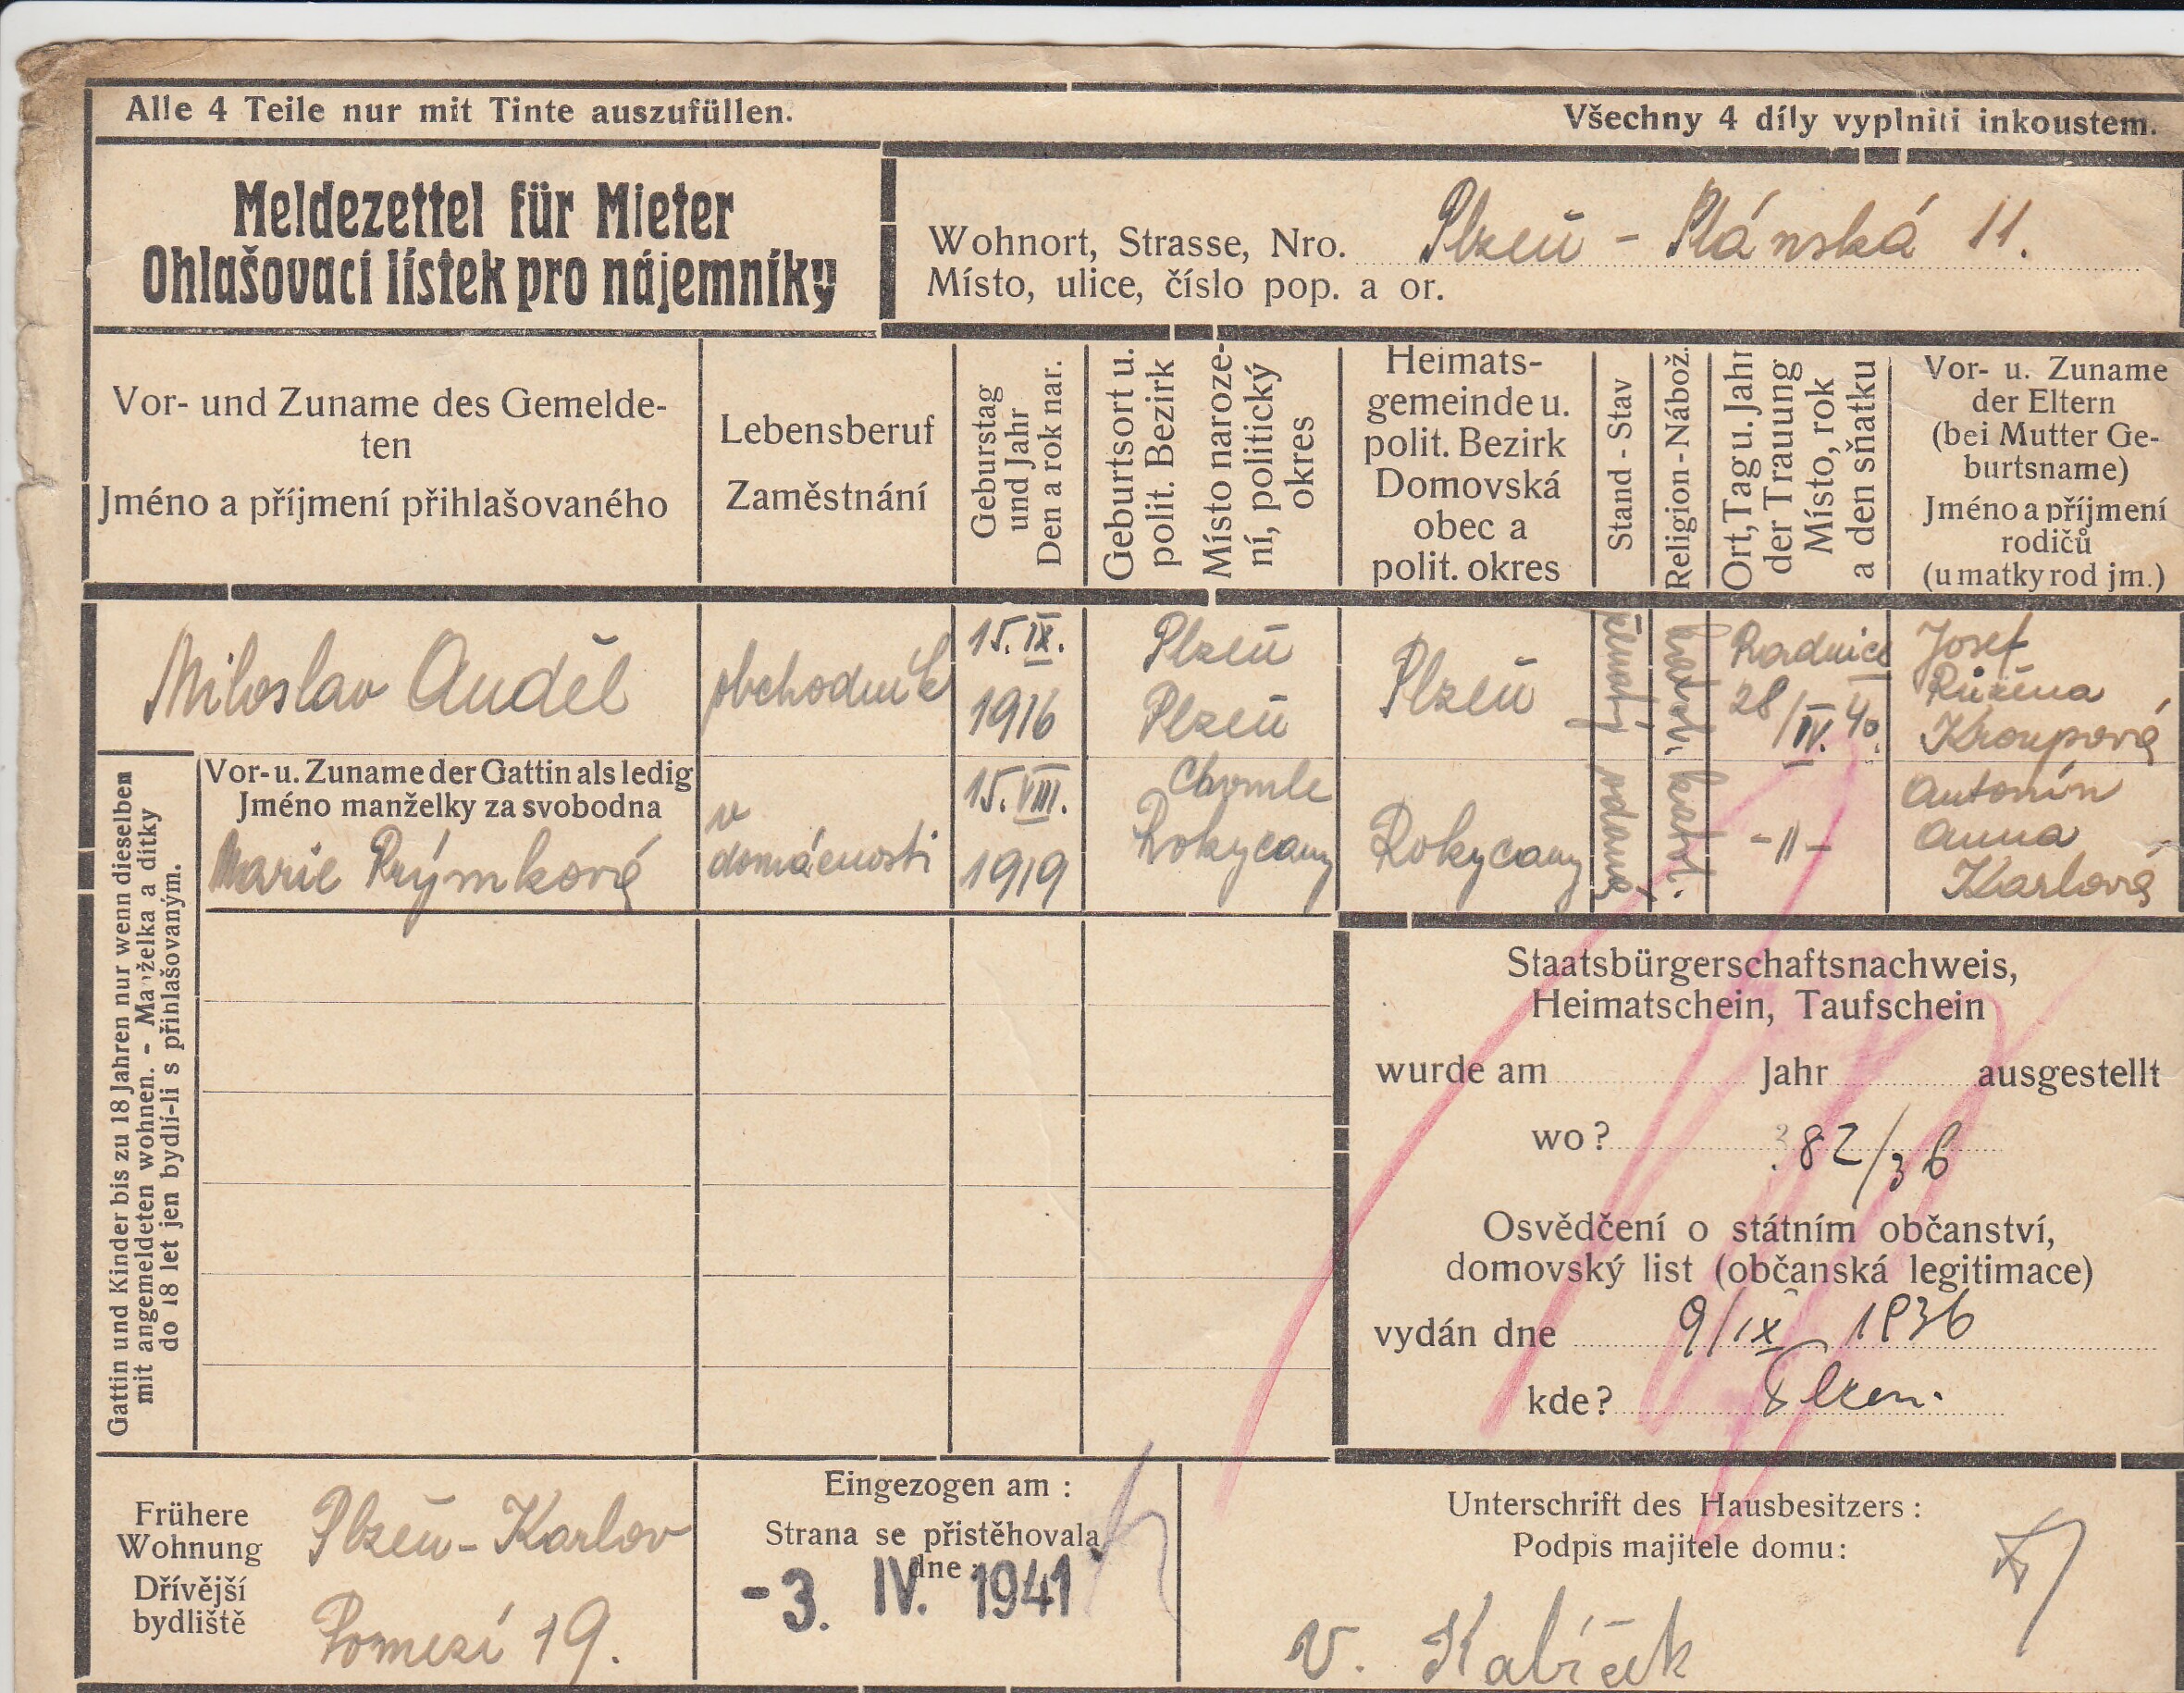 Alle 4 Teile nur mit Tinte auszufüllen.
Všechny 4 díly vyplniti inkoustem.
Meldezettel für Mieter
Ohlašovací lístek pro nájemníky
Wohnort, Strasse, Nro. Plzeň - Plánská 11.
Místo, ulice, číslo pop. a or.
Vor- und Zuname des Gemelde-
ten
Jméno a příjmení přihlašovaného
Lebensberuf
Zaměstnání
Geburstag
und Jahr
Den a rok nar.
Geburtsort u.
polit. Bezirk
Místo naroze-
ní, politický
okres
Heimats-
gemeinde u.
polit. Bezirk
Domovská
obec a
polit. okres
Stand - Stav
Religion - Nábož.
Ort, Tag u. Jahr
der Trauung
Místo, rok
a den sňatku
Vor- u. Zuname
der Eltern
(bei Mutter Ge-
burtsname)
Jméno a příjmení
rodičů
(u matky rod jm.)
Miloslav Anděl
obchodník
15. IX.
1916
Plzeň
Plzeň
Plzeň
ženatý
katol.
Radnice
28/IV. 40.
Josef
Růžena
Kroupová
Gattin und Kinder bis zu 18 Jahren nur wenn dieselben
mit angemeldeten wohnen. - Manželka a dítky
do 18 let jen bydlí-li s přihlašovaným.
Vor- u. Zuname der Gattin als ledig
Jméno manželky za svobodna
Marie Rýmková
v
domácnosti
15. VIII.
1919
Chomle
Rokycany
Rokycany
vdaná
katol.
-11-
Antonín
Anna
Karlová
Staatsbürgerschaftsnachweis,
Heimatschein, Taufschein
wurde am Jahr ausgestellt
wo? 82/36
Osvědčení o státním občanství,
domovský list (občanská legitimace)
vydán dne 9/IX 1936
kde? Plzen.
Frühere
Wohnung
Dřívější
bydliště
Plzeň - Karlov
Pomezí 19.
Eingezogen am :
Strana se přistěhovala
dne :
-3. IV. 1941
Unterschrift des Hausbesitzers :
Podpis majitele domu :
V. Kabíček